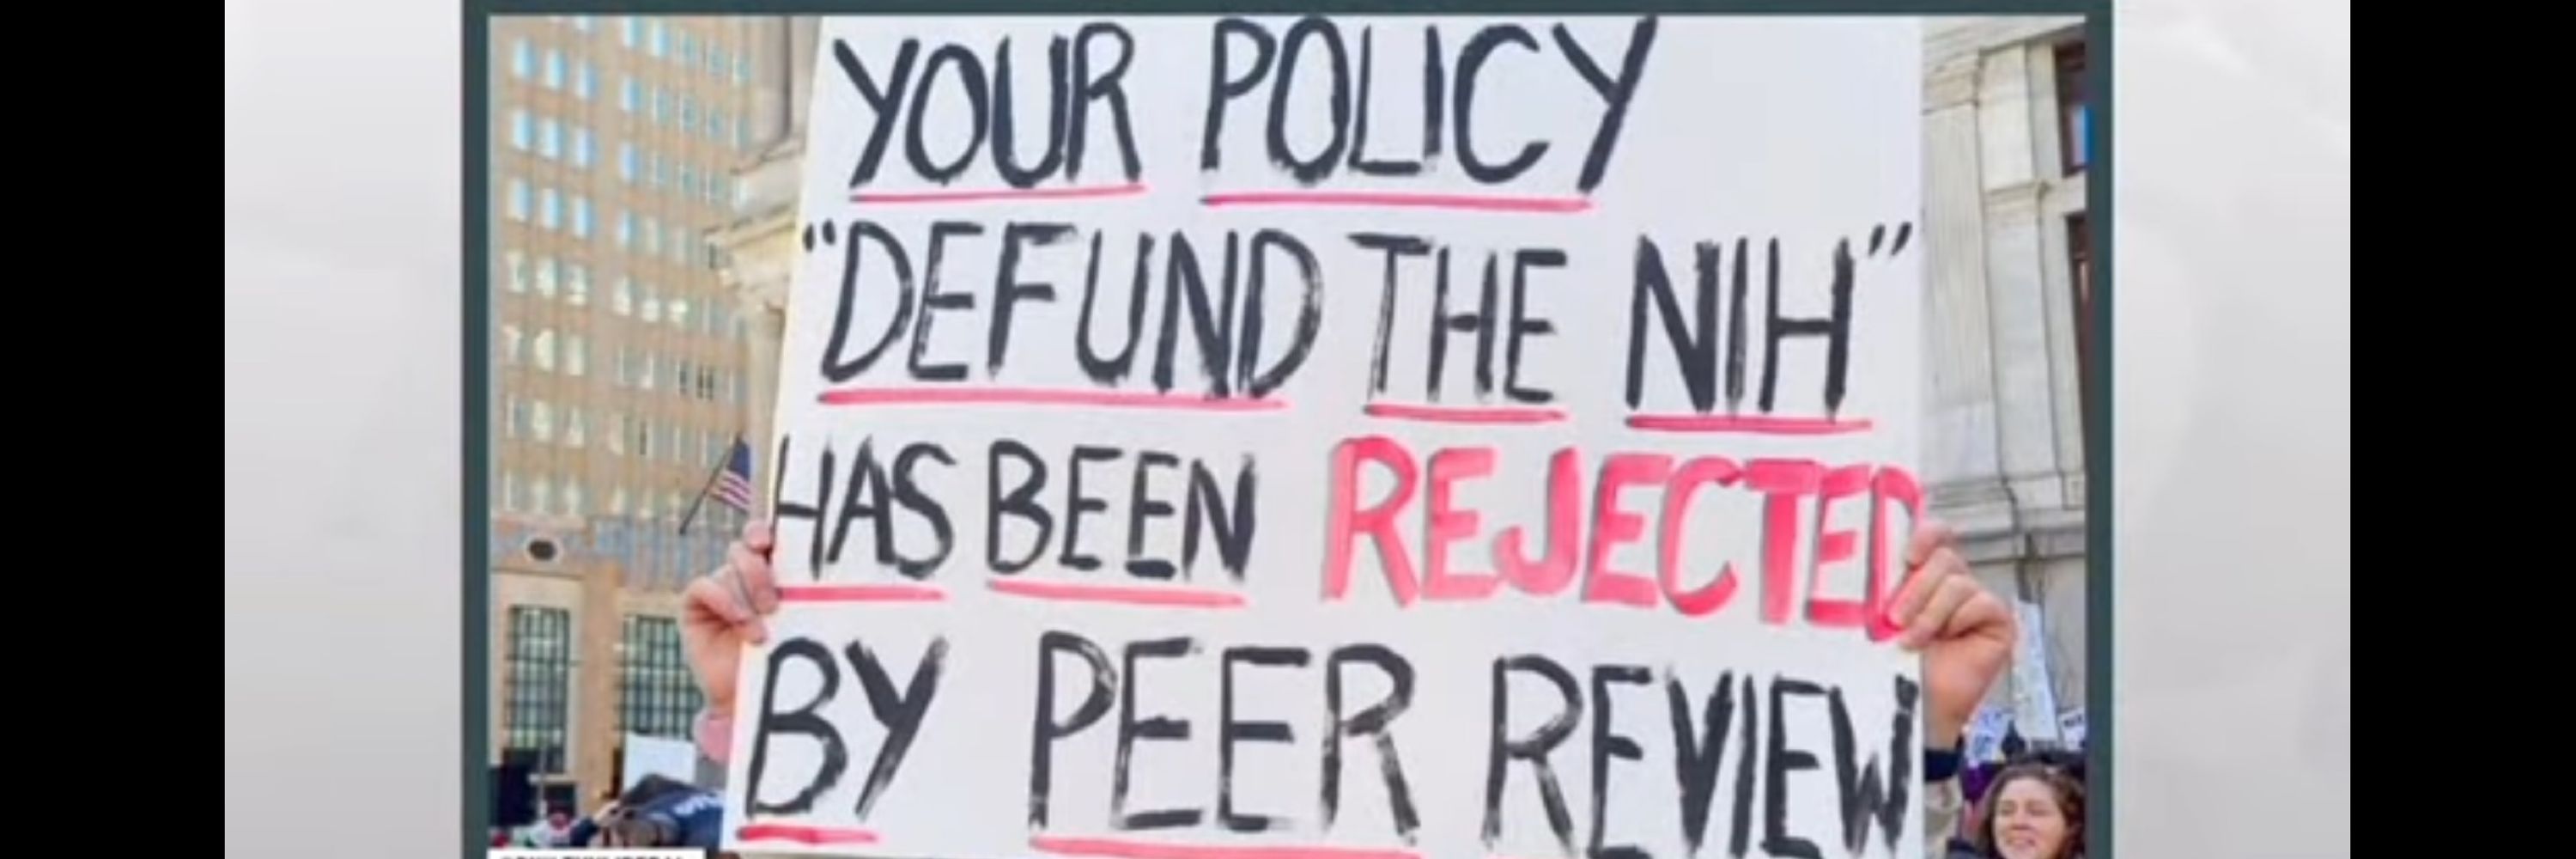 YOUR POLICY
"DEFUND THE NIH"
HAS BEEN REJECTED
BY PEER REVIEW